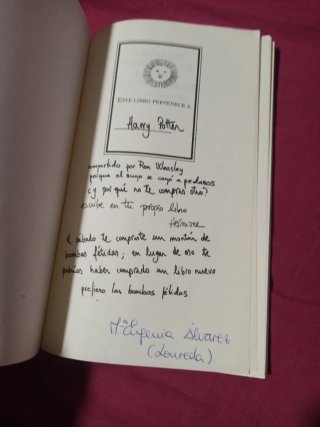 ESTE LIBRO PERTENECE A
Harry Potter
compartido por Ron Weasley
porque el suyo se cayó a pedazos
¿y por qué no te compras otro?
escribe en tu propio libro
Hermione
el sábado te compraste un montón de
bombas fétidas; en lugar de eso te
podrías haber comprado un libro nuevo
prefiero las bombas fétidas
Mª Eugenia Álvarez
(Loureda)